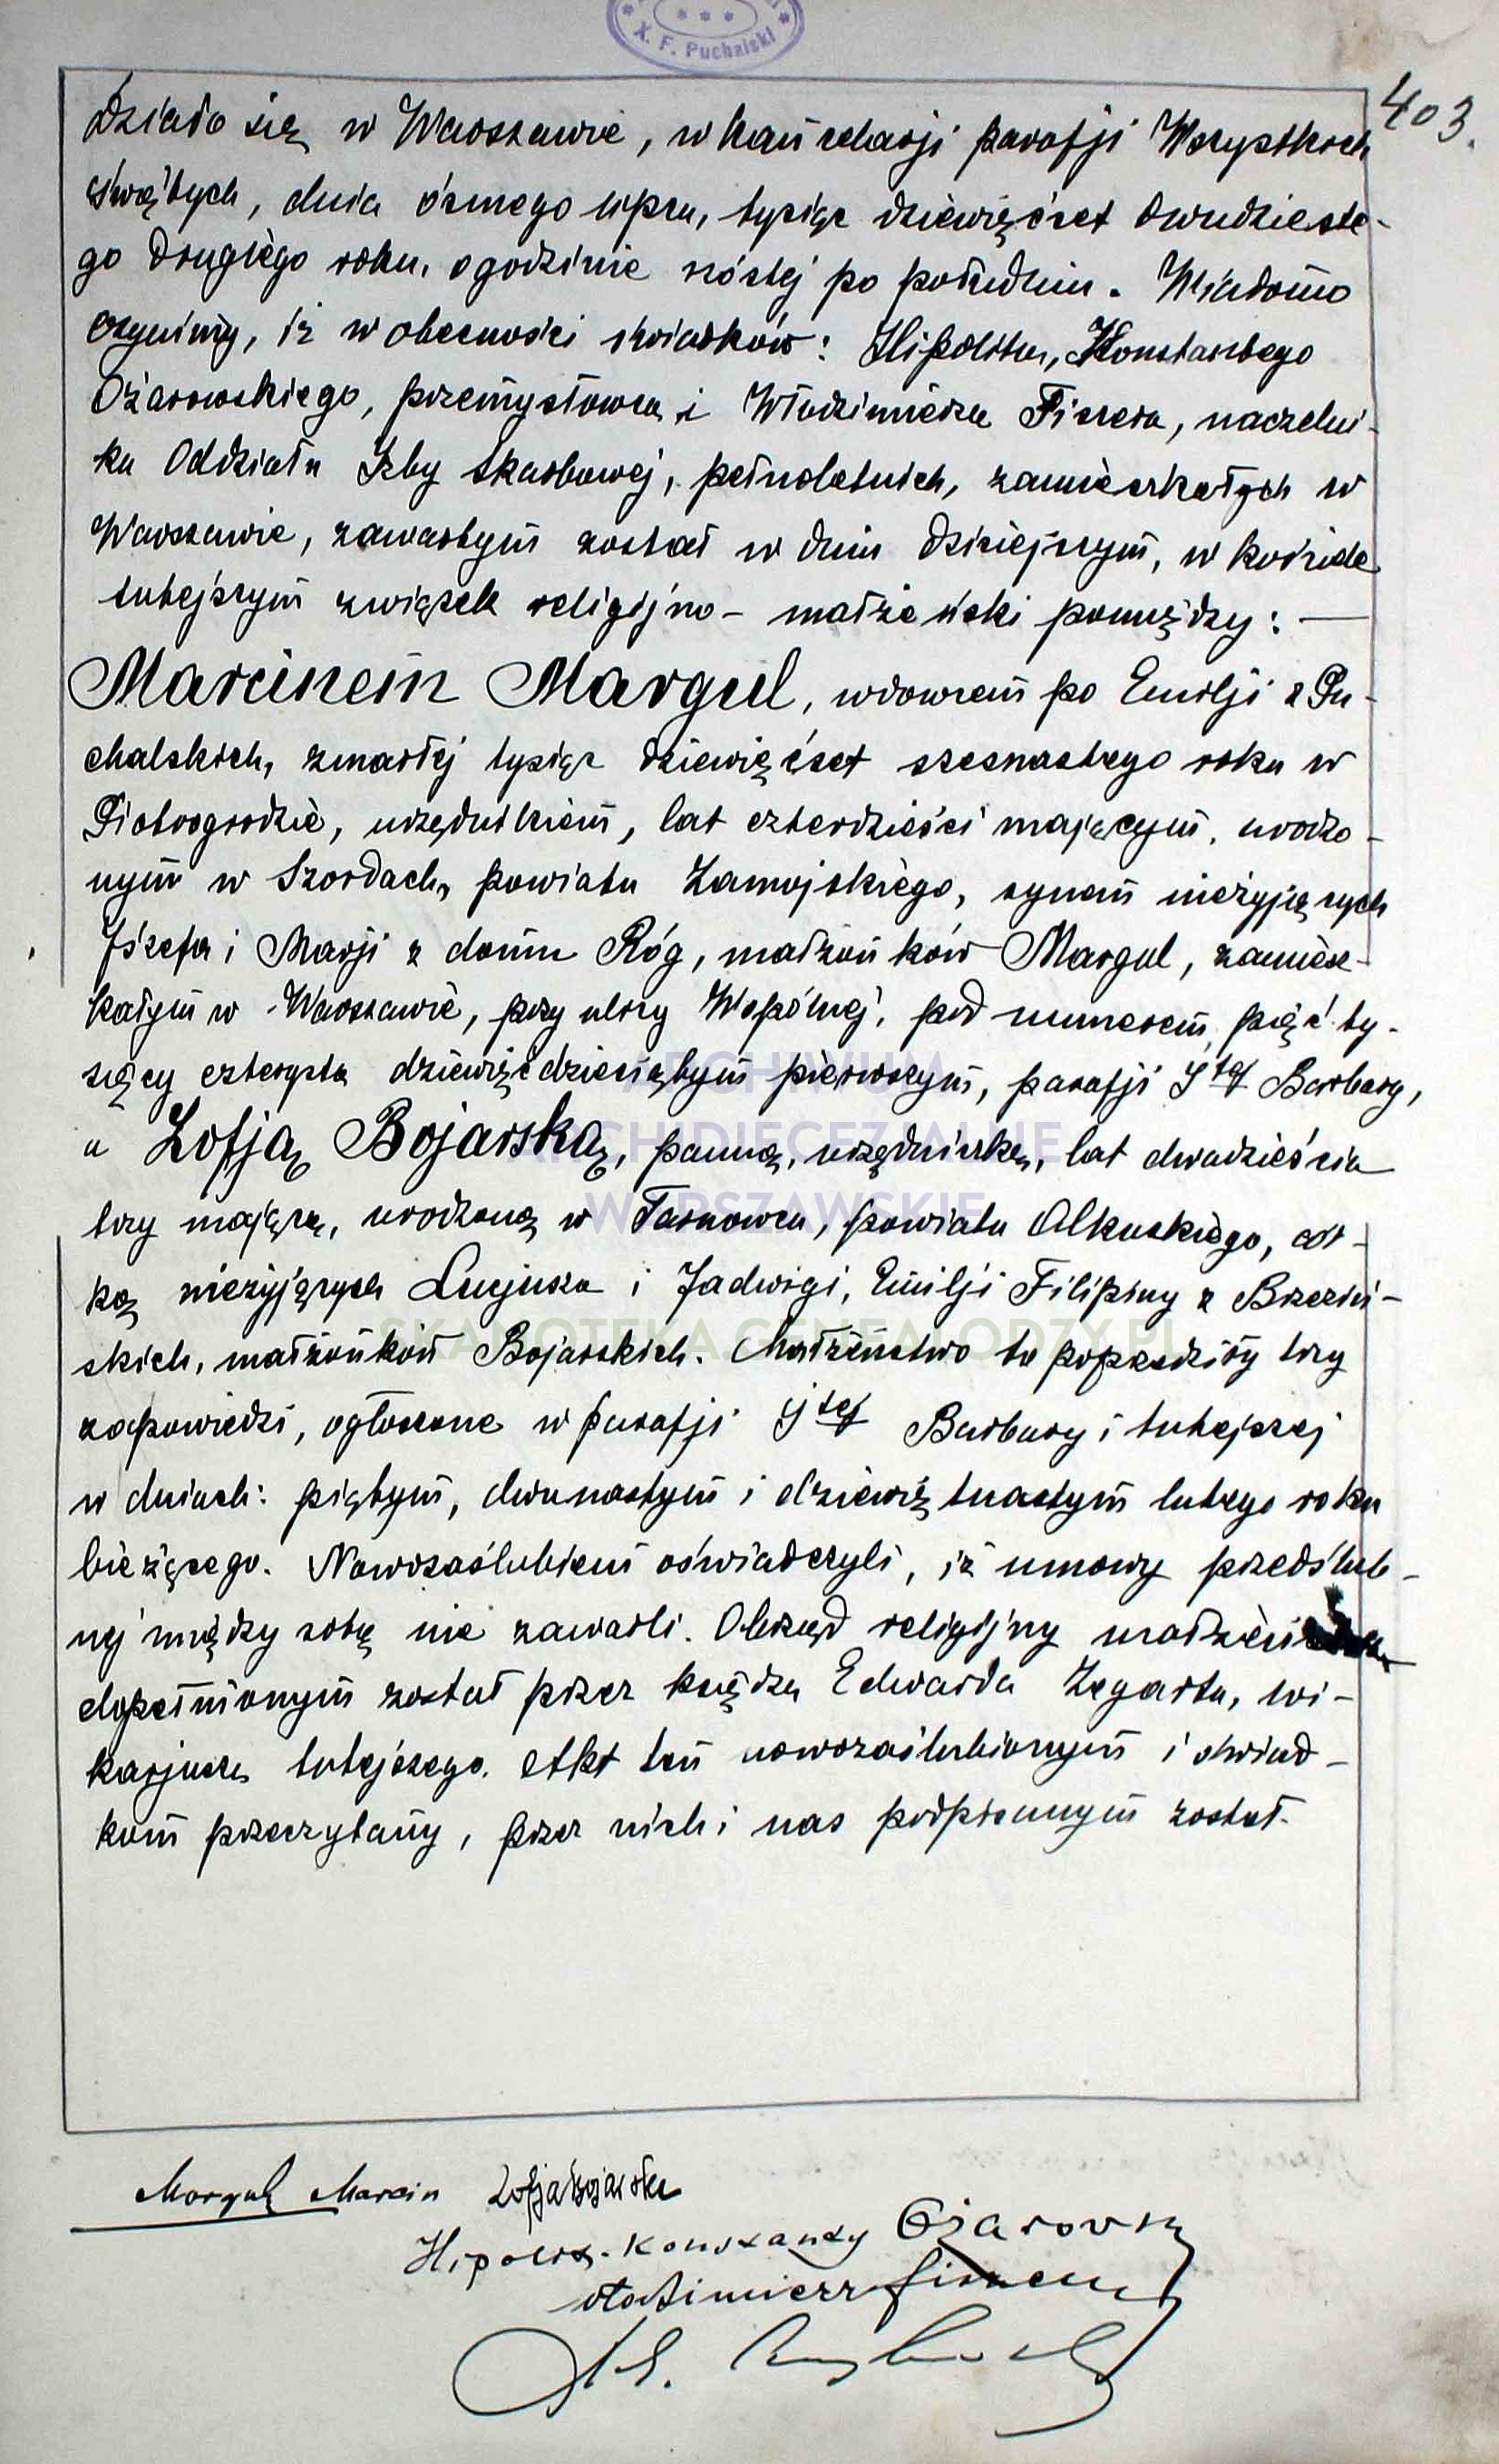 X. F. Puchalski
403.
Działo się w Warszawie, w kancelarji parafji Wszystkich
Świętych, dnia ósmego lipca, tysiąc dziewięćset dwudzieste-
go drugiego roku, o godzinie szóstej po południu. Wiadomo
czynimy, iż w obecności świadków: Hipolita, Konstantego
Ożarowskiego, przemysłowca i Włodzimierza Fiszera, naczelni-
ka Oddziału Izby Skarbowej, pełnoletnich, zamieszkałych w
Warszawie, zawartym został w dniu dzisiejszym, w kościele
tutejszym związek religijno - małżeński pomiędzy: —
Marcinem Margul, wdowcem po Emilji z Pu-
chalskich, zmarłej tysiąc dziewięćset szesnastego roku w
Piotrogrodzie, urzędnikiem, lat czterdzieści mającym, urodzo-
nym w Szordach, powiatu Zamojskiego, synem nieżyjących
Józefa i Marji z domu Róg, małżonków Margul, zamiesz-
kałym w Warszawie, przy ulicy Wspólnej, pod numerem pięć ty-
sięcy czterysta dziewięćdziesiątym pierwszym, parafji Ś tej Barbary,
a Zofją Bojarską, panną, urzędniczką, lat dwadzieścia
trzy mającą, urodzoną w Tarnowcu, powiatu Olkuskiego, cór-
ką nieżyjących Lucjusza i Jadwigi, Emilji Filipiny z Brzeziń-
skich, małżonków Bojarskich. Małżeństwo to poprzedziły trzy
zapowiedzi, ogłoszone w parafji Ś tej Barbary i tutejszej
w dniach: piątym, dwunastym i dziewiętnastym lutego roku
bieżącego. Nowozaślubieni oświadczyli, iż umowy przedślub-
nej między sobą nie zawarli. Obrzęd religijny małżeństwa
dopełnionym został przez księdza Edwarda Zegarta, wi-
karjusza tutejszego. Akt ten nowozaślubionym i świad-
kom przeczytany, przez nich i nas podpisanym został.
Margul Marcin Zofja Bojarska
Hipolit-Konstanty Ożarowski
Włodzimierz Fiszer
ARCHIWUM
ARCHIDIECEZJALNE
WARSZAWSKIE
SKANOTEKA.GENEALODZY.PL